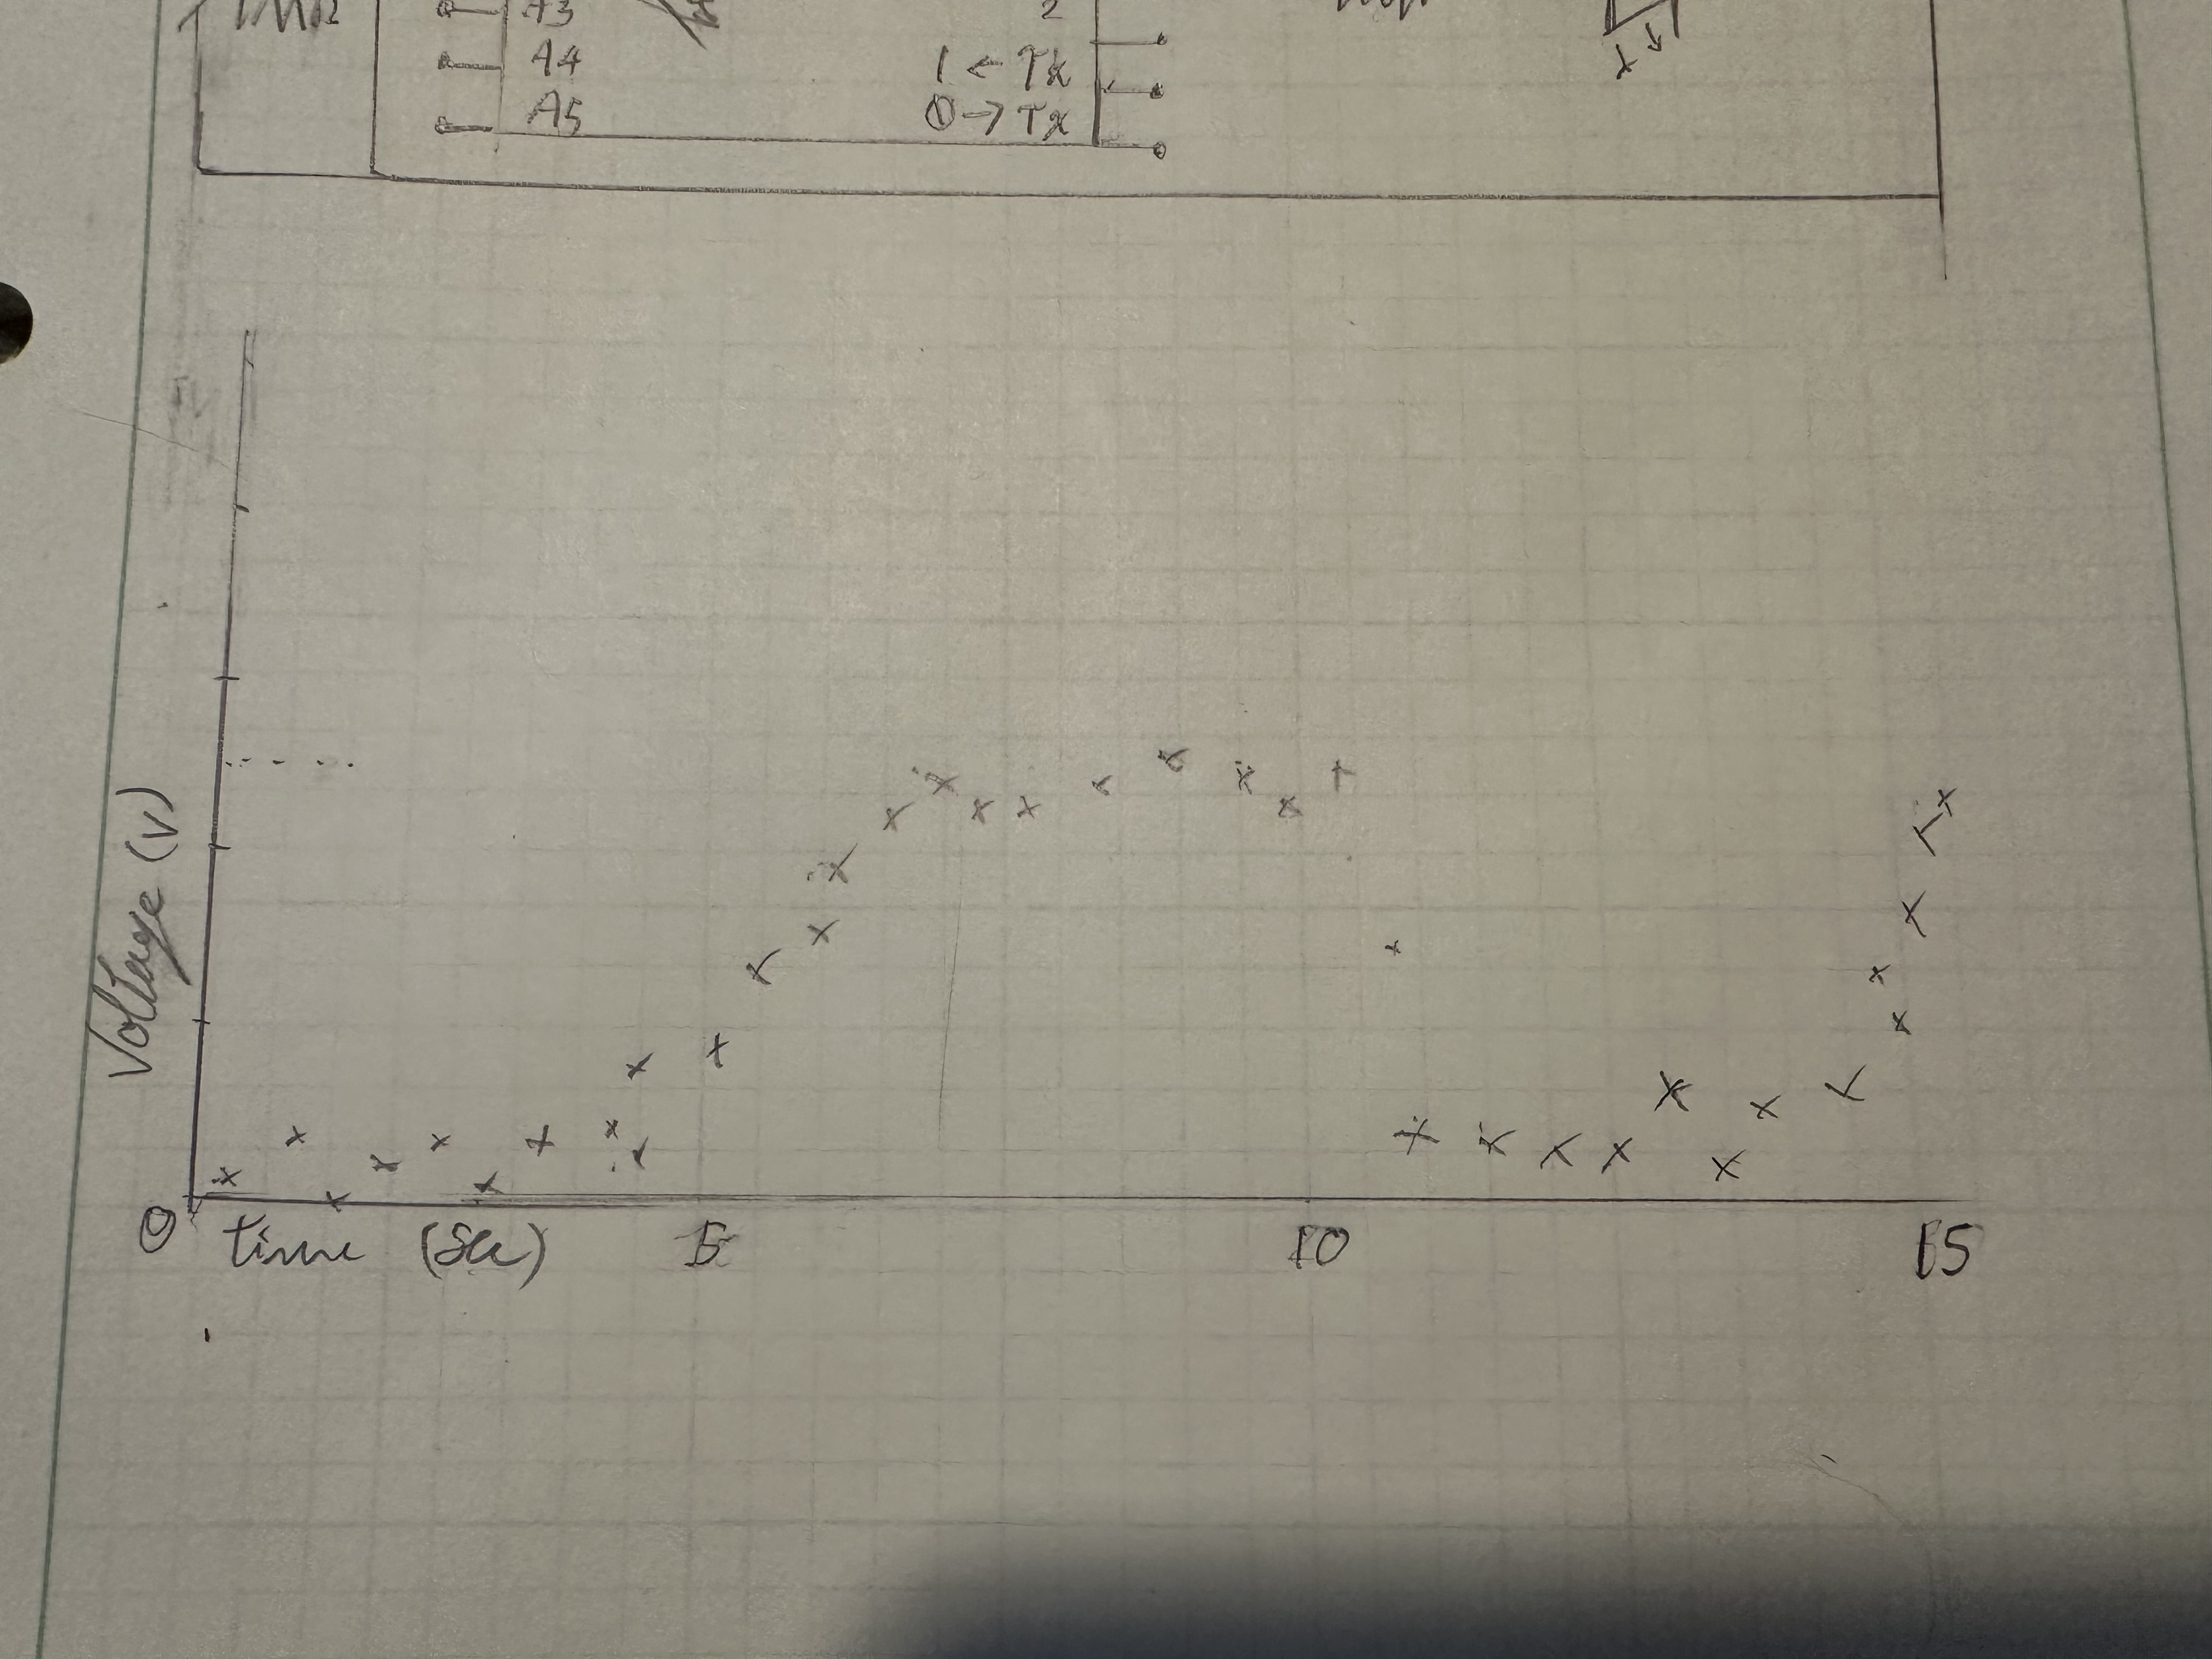 A3
2
A4
1 ← Tx
A5
0 → Tx
Voltage (V)
0
time (sec)
5
10
15